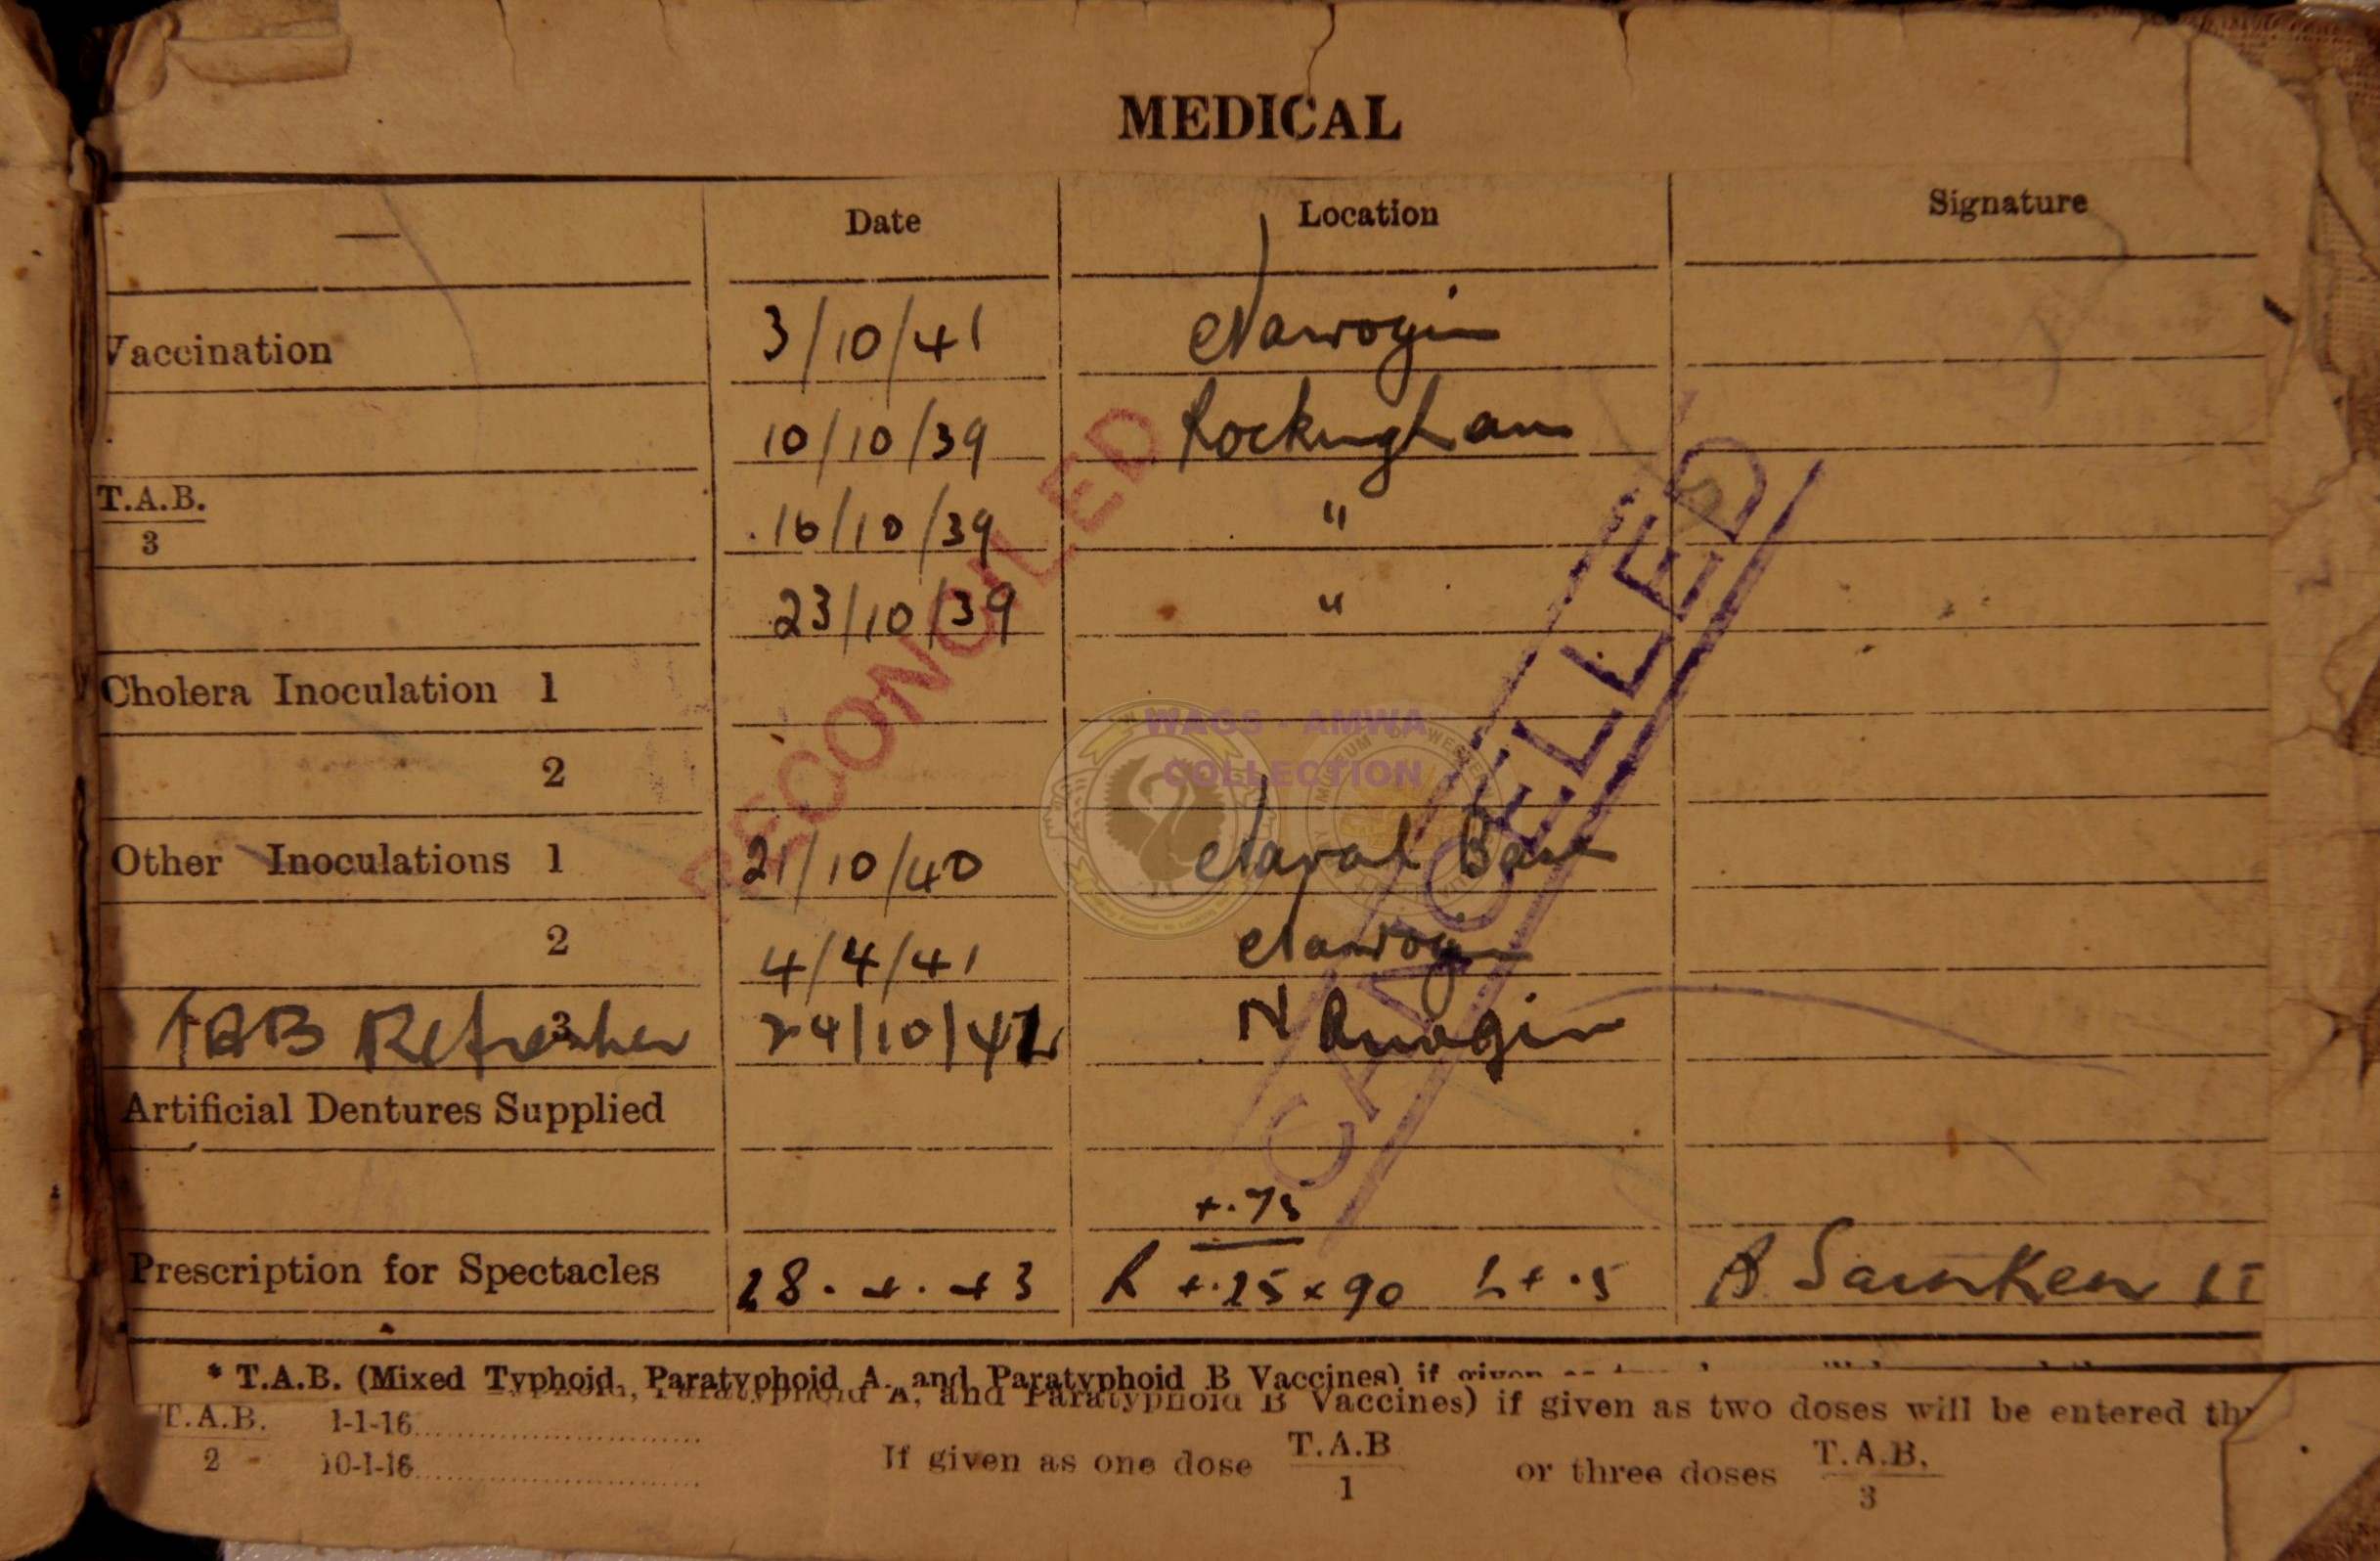 MEDICAL
— Date Location Signature
Vaccination 3/10/41 Narrogin
10/10/39 Rockingham
T.A.B. 16/10/39 "
3
23/10/39 "
Cholera Inoculation 1
2
Other Inoculations 1 21/10/40 Naval Base
2 4/4/41 Narrogin
TAB Refresher 3 24/10/42 Narrogin
Artificial Dentures Supplied
+.75
Prescription for Spectacles 28.4.43 R +.25 x 90 L +.5
RECONCILED
CANCELLED
WAGS - AMWA
COLLECTION
* T.A.B. (Mixed Typhoid, Paratyphoid A. and Paratyphoid B Vaccines) if given as
Paratyphoid A, and Paratyphoid B Vaccines) if given as two doses will be entered
T.A.B. 1-1-16
2 10-1-16
If given as one dose T.A.B
1
or three doses T.A.B.
3